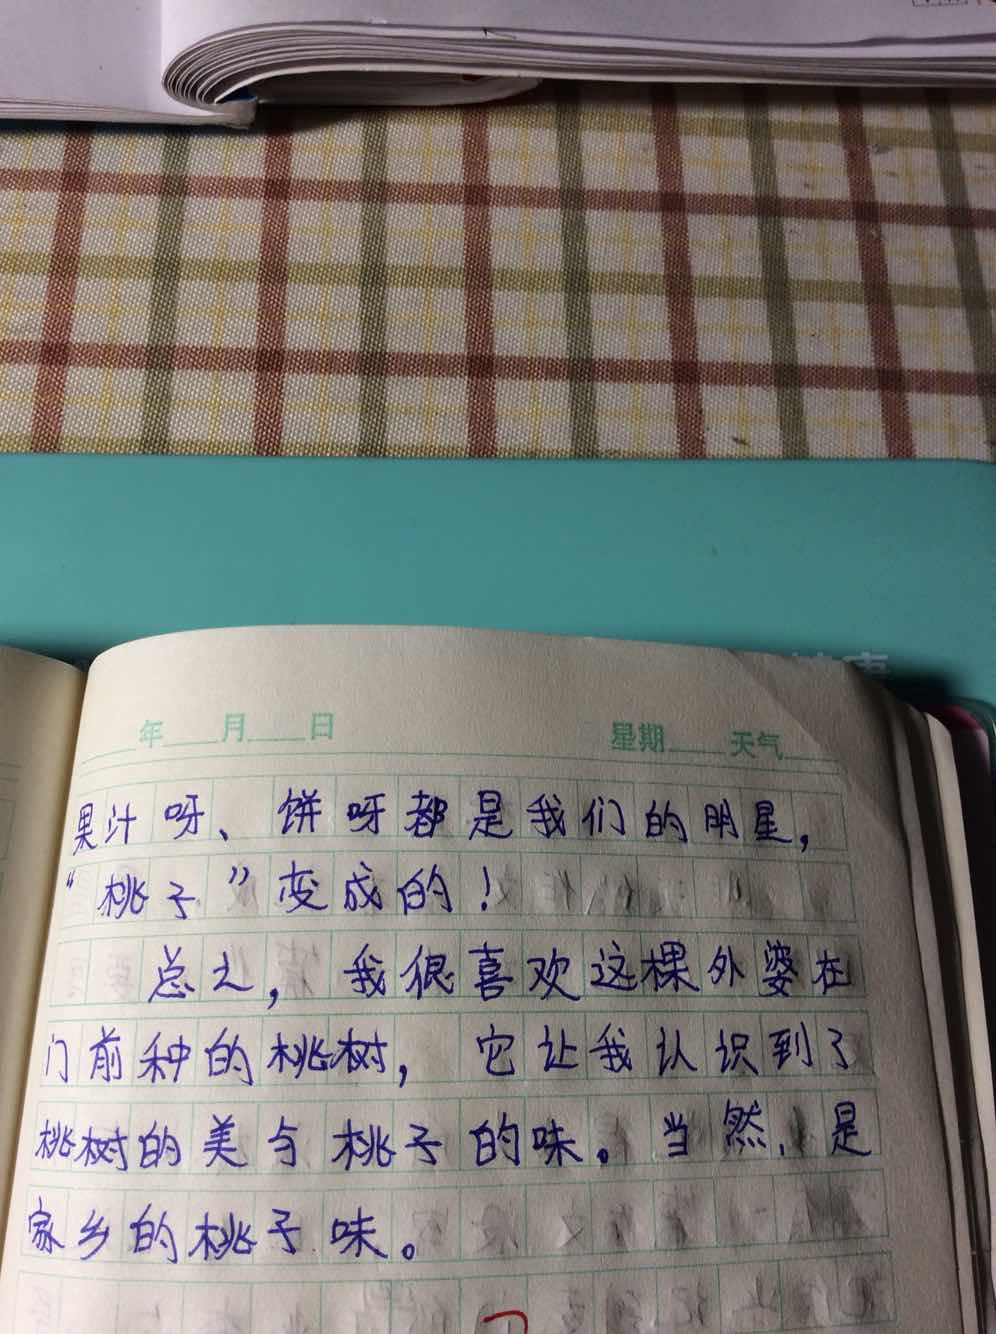 年 月 日 星期 天气
果汁呀、饼呀都是我们的明星，
“桃子”变成的！
总之，我很喜欢这棵外婆在
门前种的桃树，它让我认识到了
桃树的美与桃子的味。当然，是
家乡的桃子味。